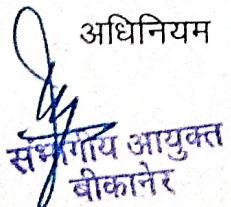 अधिनियम
संभागीय आयुक्त
बीकानेर